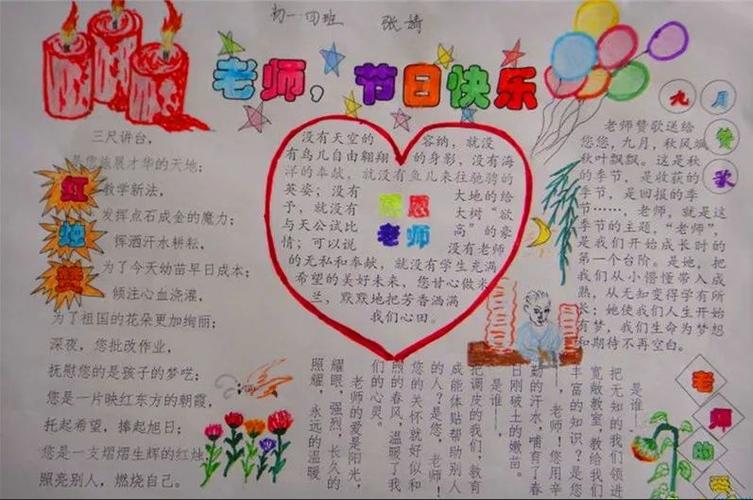 初一四班 张婧
老师，节日快乐
三尺讲台，
是您施展才华的天地；
教学新法，
发挥点石成金的魔力；
挥洒汗水耕耘，
为了今天幼苗早日成本；
倾注心血浇灌，
为了祖国的花朵更加绚丽；
深夜，您批改作业，
抚慰您的是孩子的梦呓；
您是一片映红东方的朝霞，
托起希望，捧起旭日；
您是一支熠熠生辉的红烛
照亮别人，燃烧自己。
红
烛
赞
没有天空的 容纳，就没
有鸟儿自由翱翔 的身影，没有海
洋的奉献，就没有鱼儿来往驰骋的
英姿；没有 大地的给
予，就没有 大树“欲
与天公试比 高”的豪
情；可以说 没有老师
的无私和奉献，就没有学生充满
希望的美好未来，您甘心做米
兰，默默地把芳香洒满
我们心田。
感恩
老师
九月赞歌
老师赞歌送给
您，九月，秋风飒
秋叶飘飘。这是秋
的季节，是收获的
季节，是回报的季
节……，老师，就是这
季节的主题，“老师”，
是我们开始成长时的
第一个台阶。是她，把
我们从小懵懂带入成
熟，从无知变得学有所
长；她使我们人生开始
有梦，我们生命为梦想
和期待不再空白。
是谁——
把无知的我们领进
宽敞教室，教给我们
丰富的知识？是您
——老师！您用辛
勤的汗水，哺育了春
日刚破土的嫩苗。
是谁——
把调皮的我们，教育
成能体贴帮助别人
的人？是您，老师！
您的关怀就好似和
煦的春风，温暖了我
们的心灵。
老师的爱是阳光，
耀眼，强烈，长久的
照耀，永远的温暖
老师的爱